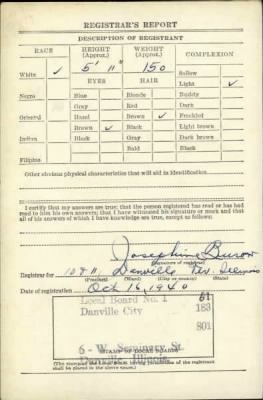 REGISTRAR'S REPORT
DESCRIPTION OF REGISTRANT
RACE HEIGHT (Approx.) WEIGHT (Approx.) COMPLEXION
5' 11" 150
White ✓ Sallow
EYES HAIR Light ✓
Negro Blue Blonde Ruddy
Gray Red Dark
Oriental Hazel Brown ✓ Freckled
Brown ✓ Black Light brown
Indian Black Gray Dark brown
Bald Black
Filipino
Other obvious physical characteristics that will aid in identification
I certify that my answers are true; that the person registered has read or has had
read to him his own answers; that I have witnessed his signature or mark and that
all of his answers of which I have knowledge are true, except as follows:
Josephine
(Signature of registrar)
Registrar for Danville Illinois
(Ward) (City or county) (State)
Date of registration Oct 16, 1940
Local Board No. 1 61
Danville City 183
801
6 - W. Seminary St.
Danville, Illinois
(STAMP OF LOCAL BOARD)
(The stamp of the Local Board having jurisdiction of the registrant
shall be placed in the above space)